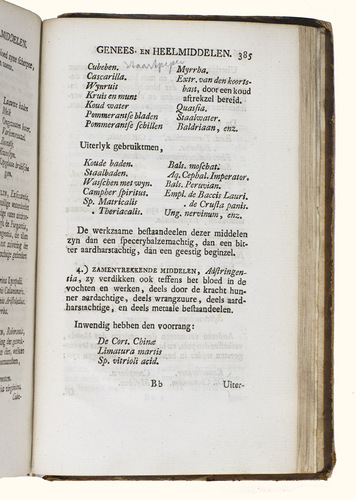 GENEES- EN HEELMIDDELEN. 385
Cubeben. Staartpeper
Cascarilla.
Wynruit
Kruis en munt
Koud water
Pommerantse bladen
Pommerantse schillen
Myrrha.
Extr. van den koorts-
bast, door een koud
aftreksel bereid.
Quassia.
Staalwater.
Baldriaan, enz.
Uiterlyk gebruiktmen,
Koude baden.
Staalbaden.
Wasschen met wyn.
Campher spiritus.
Sp. Matricalis
. Theriacalis.
Bals. moschat.
Aq. Cephal. Imperator.
Bals. Peruvian.
Empl. de Baccis Lauri.
. de Crusta panis.
Ung. nervinum, enz.
De werkzame bestaandeelen dezer middelen
zyn dan een specerybalzemachtig, dan een bit-
ter aardharstachtig, dan een geestig beginzel.
4.) ZAMENTREKKENDE MIDDELEN, Adstringen-
tia, zy verdikken ook teffens het bloed in de
vochten en werken, deels door de kracht hun-
ner aardachtige, deels wrangzuure, deels aard-
harstachtige, en deels metale bestaandeelen.
Inwendig hebben den voorrang:
De Cort. Chinæ
Limatura martis
Sp. vitrioli acid.
Bb Uiter-